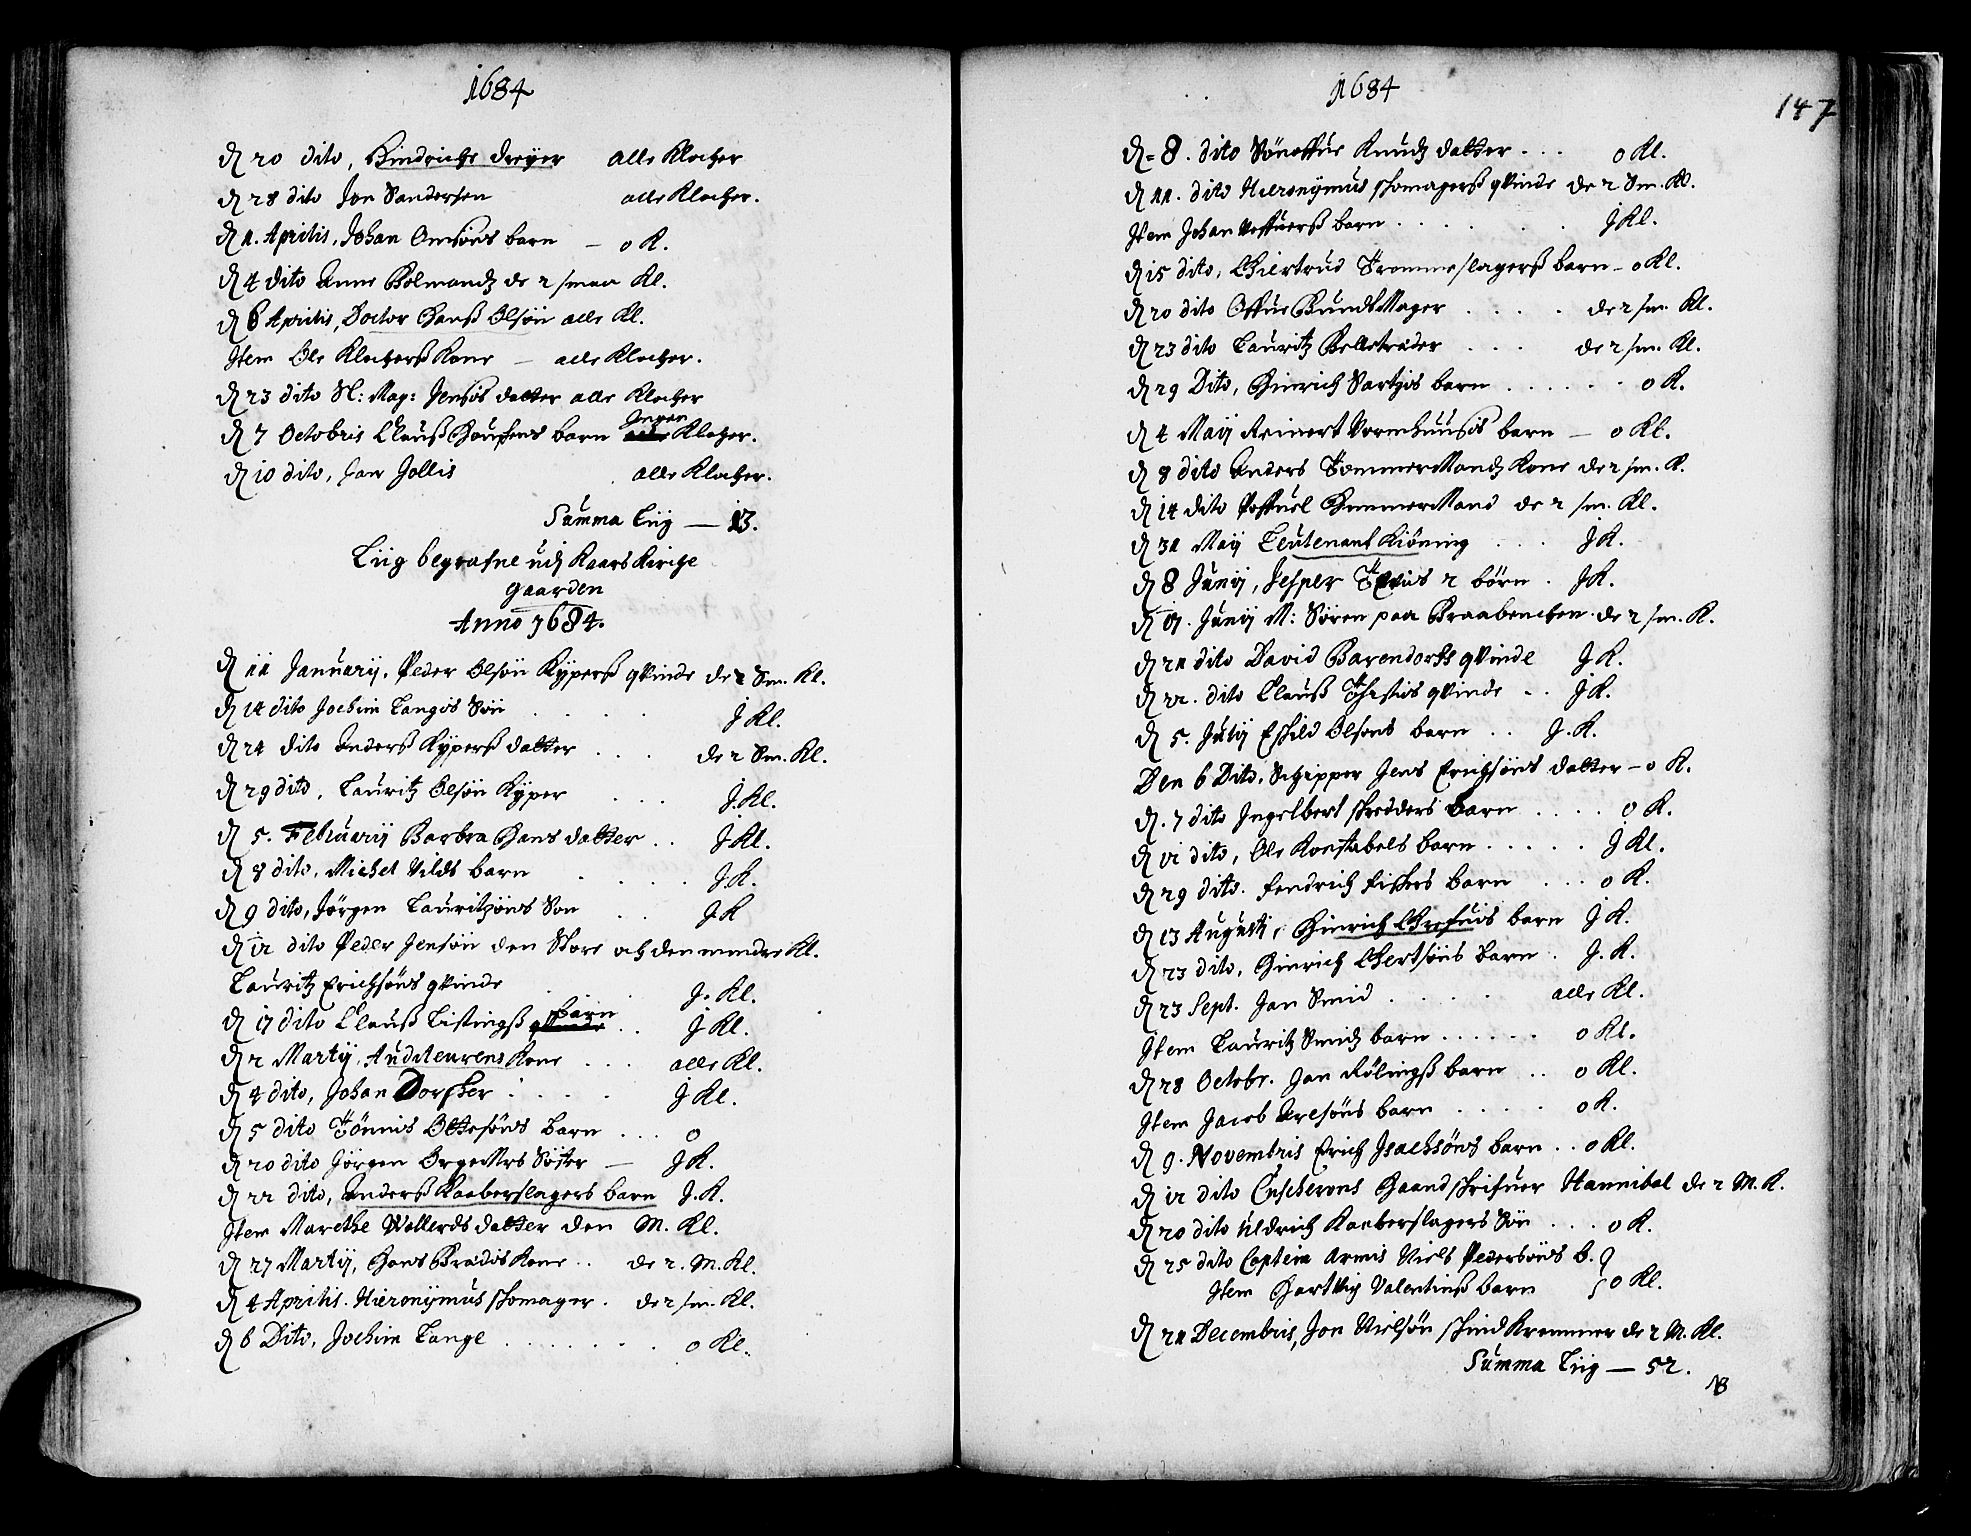 1684
D 20 dito, Hindrichs dreyer alle Klocher
D 28 dito Jon Sandersen alle Klocher.
D 1. Aprilis, Johan Omsøns barn — o K.
D 4 dito Anne Holmandz de 2 smaa Kl.
D 6 Aprilis, Doctor Hanß Olsøn alle Kl.
Item Ole Klocherß Kone — alle Klocher.
D 23 dito Sl: Mag: Jensøs datter alle Klocher
D 7 Octobris Clauß Hansens barn Ingen Klocher.
D 10 dito, Jan Jollis alle Klocher.
Summa Liig — 13.
Liig begrafne udj Kaars Kirche
gaarden
Anno 1684.
D 11 Januarij. Peder Olsøn Kyperß qvinde de 2 Sm. Kl.
D 14 dito Jochim Langes Søn . . . . J Kl.
D 24 dito Anderß Kyperß datter . . . de 2 Sm. Kl.
D 29 dito, Lauritz Olsøn Kyper . . . J. Kl.
D 5. Februarij Barbra Hans datter . . J Kl.
D 8 dito, Michel Vilds barn . . . . J. K.
D 9 dito, Jørgen Lauritzøns Søn . . J K
D 12 dito Peder Jensøn den Store och den mindre Kl.
Lauritz Erichsøns qvinde . . . J. Kl.
D 17 dito Clauß Listingß barn . . J Kl.
D 2 Martij, Auditeurens Kone . . . alle Kl.
D 4 dito, Johan Dorsker . . . . J Kl.
D 5 dito Tønnis Ottesøns barn . . . o
D 20 dito Jørgen Søster — J K.
D 22 dito, Anderß Kaaberslagers barn J. K.
Item Marethe Wollerds datter den M. Kl.
D 27 Martij, Hans Brødis Kone . . de 2. M. Kl.
D 4 Aprilis. Hieronijmus skomager . de 2 sm. Kl.
D 6 Dito, Jochim Lange . . . . . . . o Kl.
1684
147
D = 8. dito Knudz datter . . . o Kl.
D 11. dito Hieronijmus skomagerß qvinde de 2 Sm. Kl.
Item Johan barn . . . . . . J Kl.
D 15 dito, Giertrud Trommeslagerß barn - o Kl.
D 20 dito Offue BundtMager . . . . de 2 sm. Kl.
D 23 dito Lauritz . . . de 2 sm. Kl.
D 29 Dito, Hinrich barn . . . . . . o K.
D 4 Maij Reinert barn — o Kl.
D 8 dito Anders TømmerMandz Kone de 2 sm. K.
D 14 dito Poffuel de 2 sm. Kl.
D 31 Maij Leutenant Kiøning . . . J K.
D 8 Junij, Jesper 2 børn . J K.
D 17. Junij M: Søren paa Braabencken de 2 sm. K.
D 21 dito David Barendorffs qvinde J K.
D 22. dito Clauß qvinde . . J K.
D 5. Julij Eskild Olsøns barn . . J. K.
Den 6 Dito, Schipper Jens Erichsøns datter — o K.
D. 7 dito Ingelbert skredders barn . . . . o K.
D 11 dito, Ole Konstabels barn . . . . . J Kl.
D 29 dito. fendrich fiskers barn . . . o K.
D 13 Augusti, Hinrich barn J K.
D 23 dito, Hinrich Gertsøns barn . J. K.
D 23 Sept. Jan Smid . . . . . alle Kl.
Item Lauritz Smidz barn . . . . . . o Kl.
D 28 Octobr. Jan Rølingß barn . . o Kl.
Item Jacob Aresøns barn . . . . o K.
D 9. Novembris Erich Isachsøns barn . . o Kl.
D 12 dito Haandskrifuer Hannibal de 2 M. K.
D 20 dito Uldrich Kaaberslagers Søn . . . o K.
D 25 dito Captein Armis Niels Pedersøns b.
Item Hartvig Valentinß barn o Kl.
D 21 Decembris, Jon Nielsøn skindKremmer de 2 M. Kl.
Summa Liig — 52.
NB